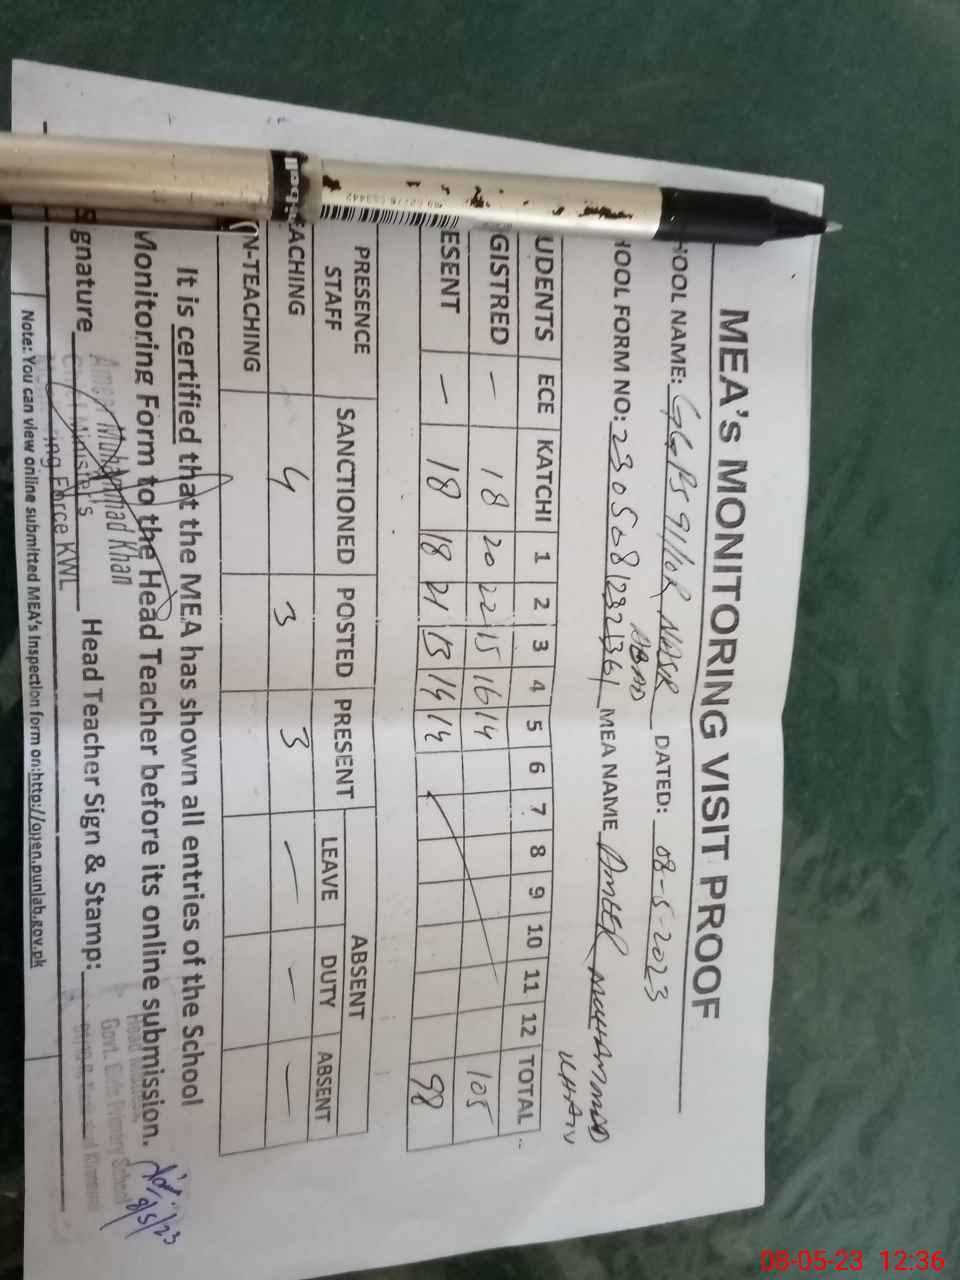 MEA's MONITORING VISIT PROOF
HOOL NAME: GGPS 91/10R NASR ABAD DATED: 08-5-2023
HOOL FORM NO: MEA NAME AMEER MUHAMMAD KHAN
UDENTS ECE KATCHI 1 2 3 4 5 6 7 8 9 10 11 12 TOTAL
GISTRED – 18 20 22 15 16 14 105
ESENT – 18 18 21 13 14 14 98
PRESENCE STAFF SANCTIONED POSTED PRESENT ABSENT
LEAVE DUTY ABSENT
EACHING 4 3 3 – – –
N-TEACHING
It is certified that the MEA has shown all entries of the School
Monitoring Form to the Head Teacher before its online submission.
gnature Head Teacher Sign & Stamp:
Ameer Muhammad Khan
Chief Minister's
ing Force KWL
Head Mistress
Govt. Girls Primary School
8/5/23
Note: You can view online submitted MEA's Inspection form on:http://open.punjab.gov.pk
08-05-23 12:36